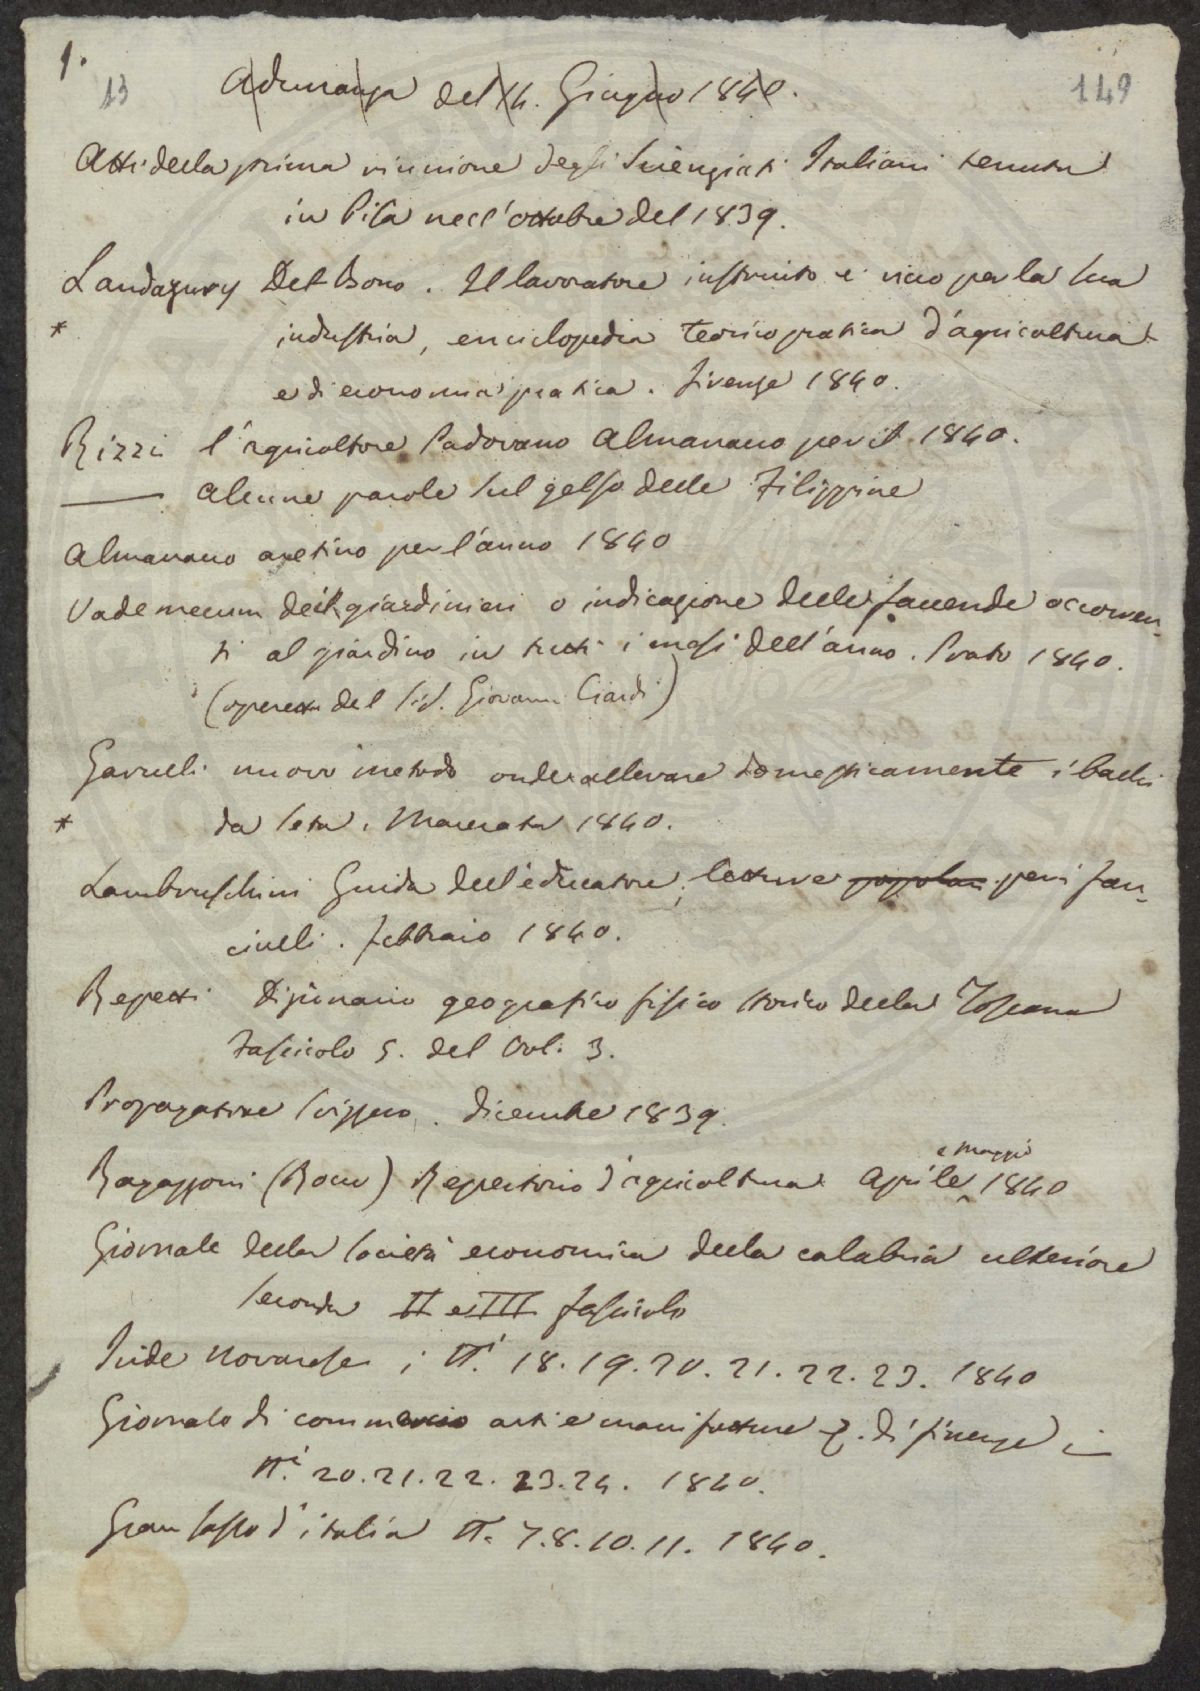 1.
13
149
Adunanza del 14. Giugno 1840.
Atti della prima riunione degli Scienziati Italiani tenuta
in Pisa nell'ottobre del 1839.
Landazury Del Bono. Il lavoratore instruito e ricco per la sua
* industria, enciclopedia teorico pratica d'agricoltura
e di economia pratica. Firenze 1840.
Rizzi l'agricoltore Padovano Almanacco per il 1840.
—— Alcune parole sul gelso delle Filippine
Almanacco aretino per l'anno 1840
Vademecum del giardinieri o indicazione delle faccende occorren-
ti al giardino in tutti i mesi dell'anno. Prato 1840.
(operetta del Sig. Giovanni Ciardi)
Garulli nuovo metodo onde allevare domesticamente i bachi
* da seta. Macerata 1840.
Lambruschini Guida dell'educatore, letture popolari per i fan-
ciulli. febbraio 1840.
Repetti Dizionario geografico fisico storico della Toscana
Fascicolo 5. del Vol. 3.
Propagatore Svizzero. dicembre 1839.
e Maggio
Ragazzoni (Rocco) Repertorio d'agricoltura Aprile 1840
Giornale della Società economica della calabria ulteriore
seconda II e III fascicolo
Iride Novarese i N.i 18. 19. 20. 21. 22. 23. 1840
Giornale di commercio arti e manifatture di firenze i
N.i 20. 21. 22. 23. 24. 1840.
Gran Sasso d'italia N. 7. 8. 10. 11. 1840.